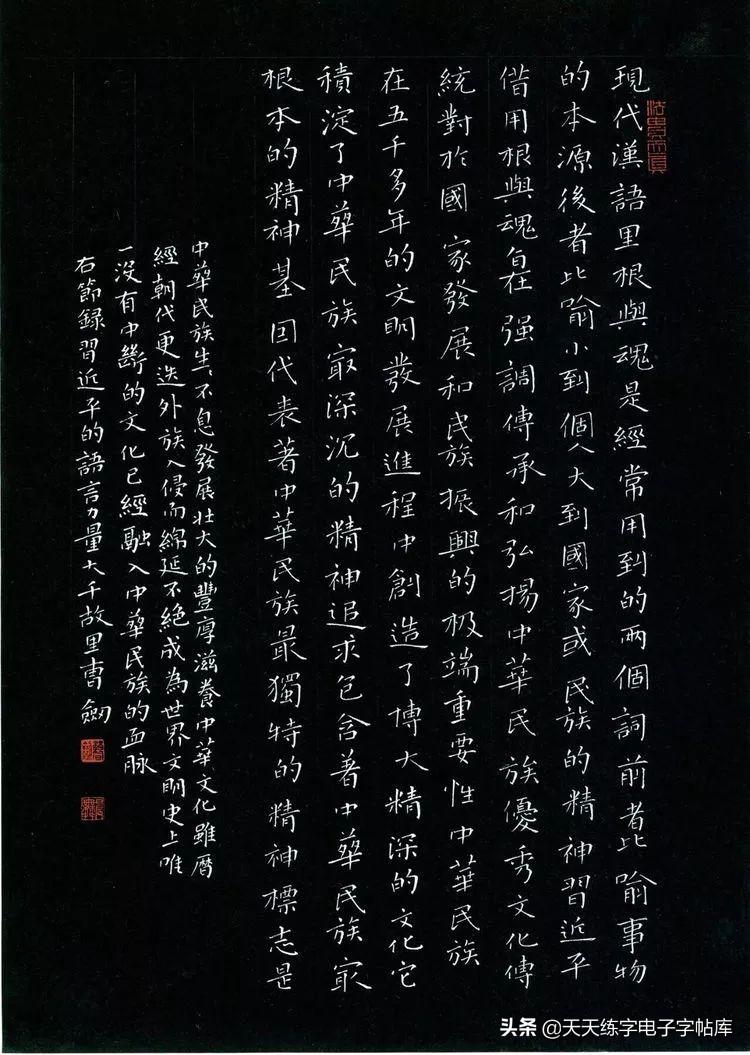 現代漢語里根與魂是經常用到的兩個詞前者比喻事物
的本源後者比喻小到個人大到國家或民族的精神習近平
借用根與魂旨在强調傳承和弘揚中華民族優秀文化傳
統對於國家發展和民族振興的极端重要性中華民族
在五千多年的文明發展進程中創造了博大精深的文化它
積淀了中華民族最深沉的精神追求包含著中華民族最
根本的精神基因代表著中華民族最獨特的精神標志是
中華民族生〻不息發展壯大的豐厚滋養中華文化雖曆
經朝代更迭外族入侵而綿延不絕成為世界文明史上唯
一沒有中斷的文化已經融入中華民族的血脉
右節錄習近平的語言力量大千故里曹劍
头条 @天天练字电子字帖库